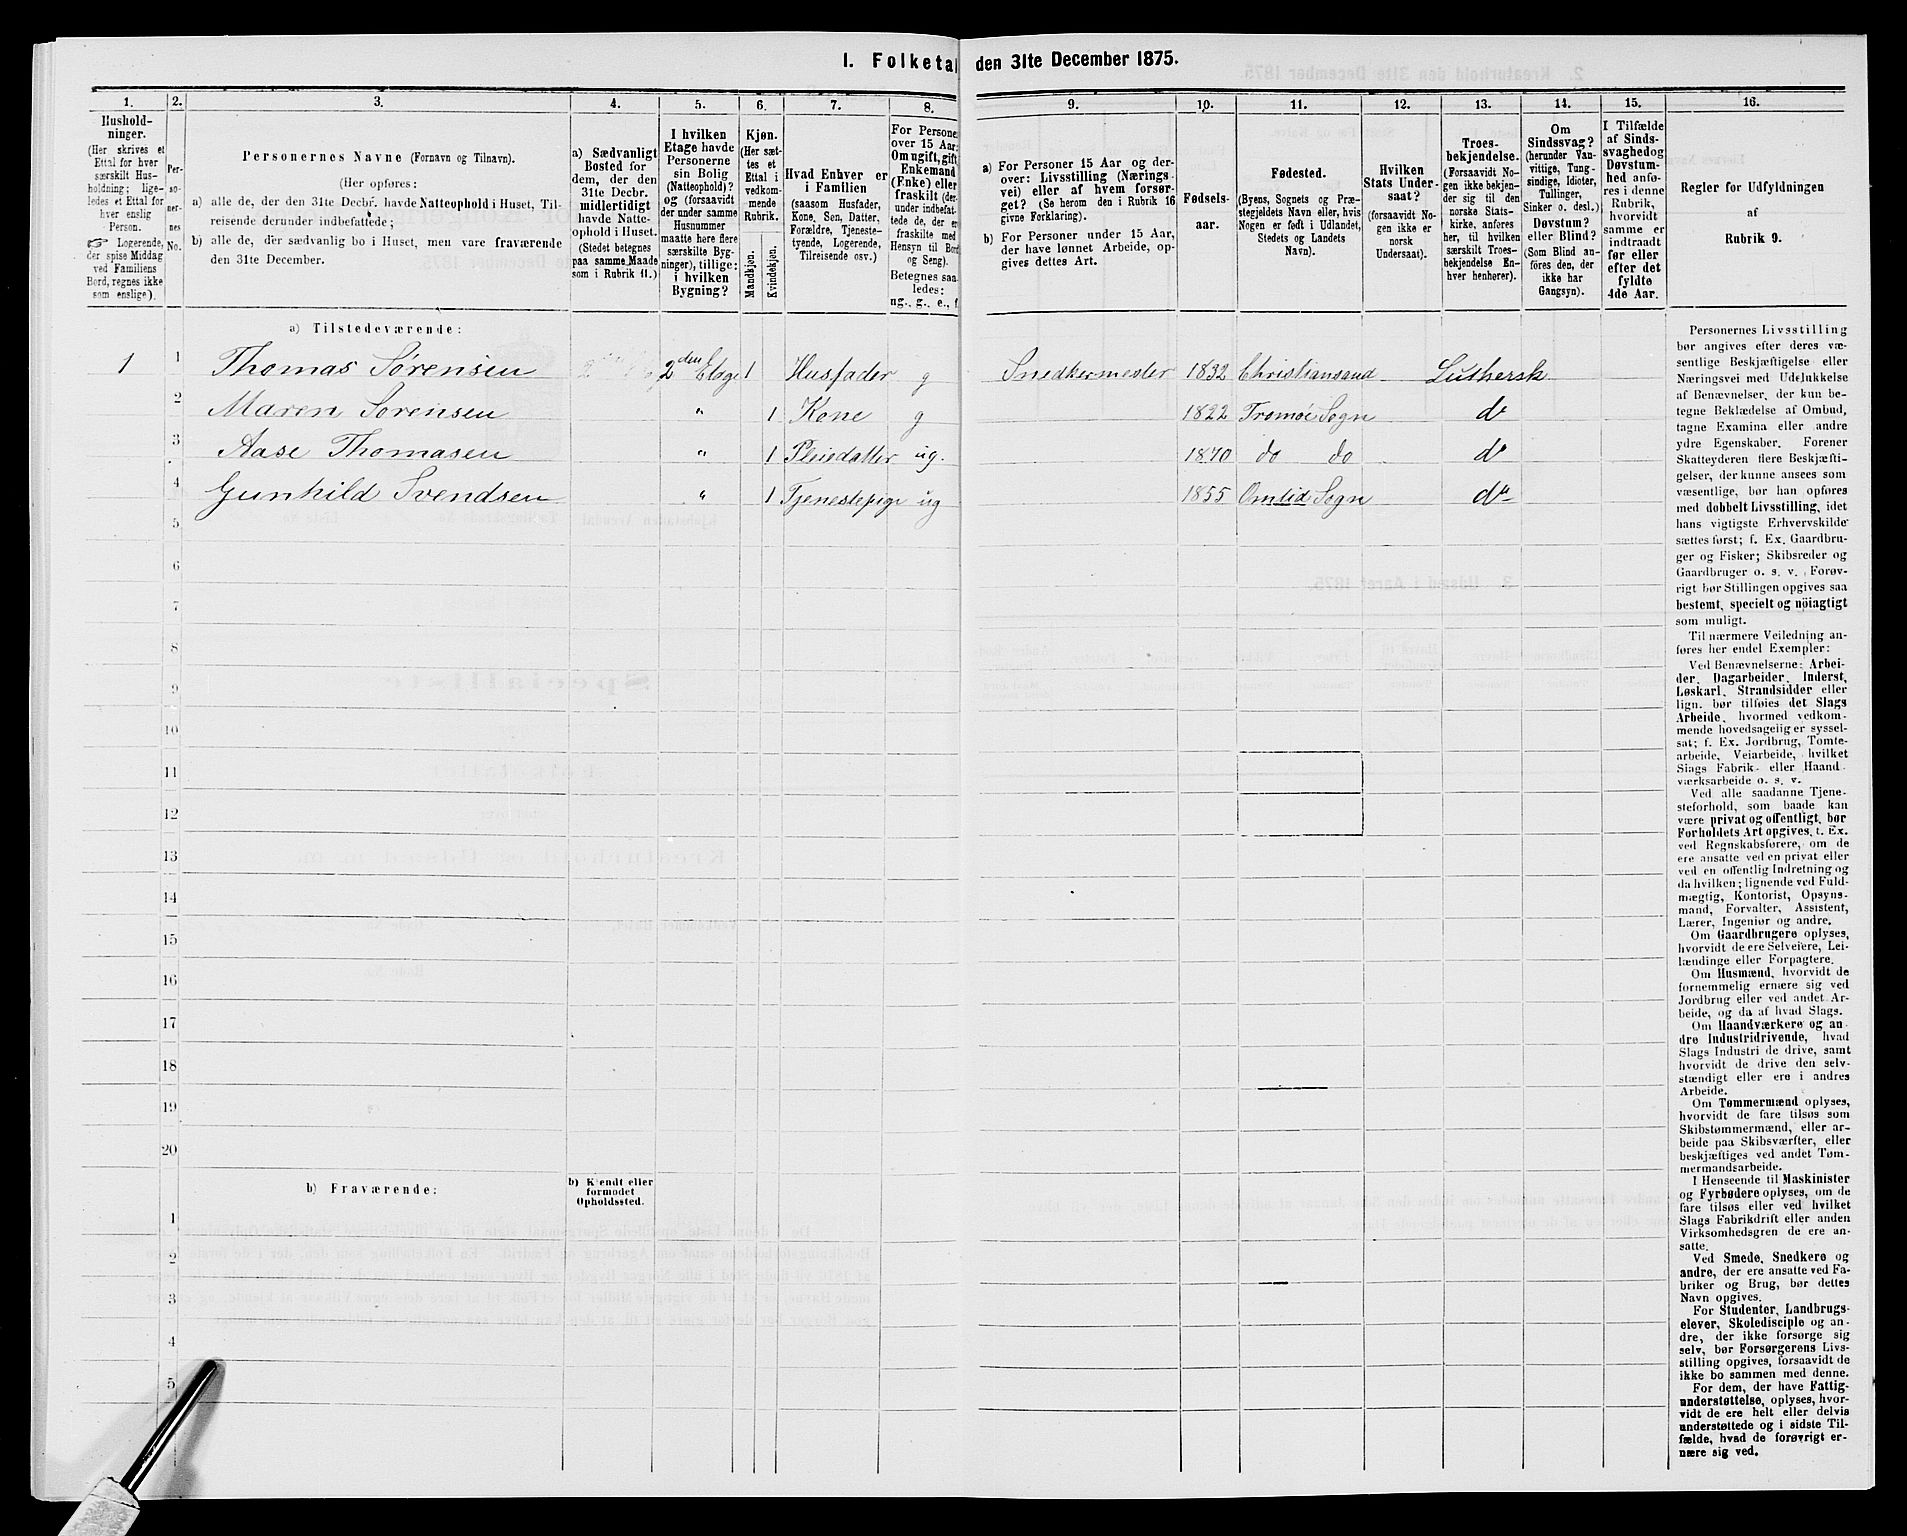 I. Folketal den 31te December 1875.
1. 2. 3. 4. 5. 6. 7. 8. 9. 10. 11. 12. 13. 14. 15. 16.
Hushold-
ninger.
(Her skrives et
Ettal for hver
særskilt Hus-
holdning; lige-
ledes et Ettal for
hver enslig
Person.
☞ Logerende,
der spise Middag
ved Familiens
Bord, regnes ikke
som enslige).
Per-
so-
ner-
nes
No.
Personernes Navne (Fornavn og Tilnavn).
(Her opføres:
a) alle de, der den 31te Decbr. havde Natteophold i Huset, Til-
reisende derunder indbefattede;
b) alle de, der sædvanlig bo i Huset, men vare fraværende
den 31te December.
a) Sædvanligt
Bosted for
dem, der den
31te Decbr.
midlertidigt
havde Natte-
ophold i Huset.
(Stedet betegnes
paa samme Maade
som i Rubrik 11.)
I hvilken
Etage havde
Personerne
sin Bolig
(Natteophold)?
og (forsaavidt
der under samme
Husnummer
maatte høre flere
særskilte Byg-
ninger), tillige:
i hvilken
Bygning?
Kjøn.
(Her sæt-
tes et
Ettal i
vedkom-
mende
Rubrik.
Mandkjøn.
Kvindekjøn.
Hvad Enhver er
i Familien
(saasom Husfader,
Kone, Søn, Datter,
Forældre, Tjeneste-
tyende, Logerende,
Tilreisende osv.)
For Persone
over 15 Aar:
Om ugift, gift
Enkemand
(Enke) eller
fraskilt (der-
under indbefat-
tede de, der er
fraskilte med
Hensyn til Bord
og Seng).
Betegnes saa
ledes:
ug., g., e., f
a) For Personer 15 Aar og der-
over: Livsstilling (Nærings-
vei) eller af hvem forsør-
get? (Se herom den i Rubrik 16
givne Forklaring).
b) For Personer under 15 Aar,
der have lønnet Arbeide, op-
gives dettes Art.
Fødsels-
aar.
Fødested.
(Byens, Sognets og Præ-
stegjeldets Navn eller, hvis
Nogen er født i Udlandet,
Stedets og Landets
Navn).
Hvilken
Stats Under-
saat?
(forsaavidt No-
gen ikke er
norsk
Undersaat).
Troes-
bekjendelse.
(Forsaavidt No-
gen ikke bekjen-
der sig til den
norske Stats-
kirke, anføres
her, til hvilken
særskilt Troes-
bekjendelse En-
hver henhører).
Om
Sindssvag?
(herunder Van-
vittige, Tung-
sindige, Idioter,
Tullinger,
Sinker o. desl.)
Døvstum?
eller Blind?
(Som Blind an-
føres den, der
ikke har
Gangsyn).
I Tilfælde
af Sinds-
svaghed og
Døvstum-
hed anfø-
res i denne
Rubrik,
hvorvidt
samme er
indtraadt
før eller
efter det
fyldte
4de Aar.
Regler for Udfyldningen
af
Rubrik 9.
a) Tilstedeværende:
1 1 Thomas Sørensen 2den Etage 1 Husfader g Snedkermester 1832 Christiansand Luthersk
2 Maren Sørensen " 1 Kone g 1822 Tromøe Sogn do
3 Aase Thomasen " 1 Pleiedatter ug. 1870 do do do
4 Gunhild Svendsen " 1 Tjenestepige ug 1855 Omlid Sogn do
5
6
7
8
9
10
11
12
13
14
15
16
17
18
19
20
b) Fraværende:
b) Kjendt eller
formodet
Opholdssted.
1
2
3
4
5
Personernes Livsstilling
bør angives efter deres væ-
sentlige Beskjæftigelse eller
Næringsvei med Udelukkelse
af Benævnelser, der kun be-
tegne Beklædelse af Ombud,
tagne Examina eller andre
ydre Egenskaber. Forener
Skatteyderen flere Beskjæfti-
gelser, der kunne ansees som
væsentlige, bør han opføres
med dobbelt Livsstilling, idet
hans vigtigste Erhvervskilde
sættes først; f. Ex. Gaardbru-
ger og Fisker; Skibsreder og
Gaardbruger o. s. v. Forøv-
rigt bør Stillingen opgives saa
bestemt, specielt og nøiagtigt
som muligt.
Til nærmere Veiledning an-
føres her endel Exempler:
Ved Benævnelserne: Arbei-
der, Dagarbeider, Inderst,
Løskarl, Strandsidder eller
lign. bør tilføies det Slags
Arbeide, hvormed vedkom-
mende hovedsagelig er syssel-
sat; f. Ex. Jordbrug, Tomte-
arbeide, Veiarbeide, hvilket
Slags Fabrik- eller Haand
værksarbeide o. s. v.
Ved alle saadanne Tjene-
steforhold, som baade kan
være privat og offentligt, bør
Forholdets Art opgives, t. Ex.
ved Regnskabsførere, om de
ere ansatte ved en privat eller
ved en offentlig Indretning og
da hvilken; lignende ved Fuld-
mægtig, Kontorist, Opsyns-
mand, Forvalter, Assistent,
Lærer, Ingeniør og andre.
Om Gaardbrugere oplyses,
hvorvidt de ere Selveiere, Lei-
lændinge eller Forpagtere.
Om Husmænd, hvorvidt de
fornemmelig ernære sig ved
Jordbrug eller ved andet Ar-
beide, og da af hvad Slags.
Om Haandværkere og an
dre Industridrivende, hvad
Slags Industri de drive, samt
hvorvidt de drive den selv-
stændigt eller ere i andres
Arbeide.
Om Tømmermænd oplyses,
hvorvidt de fare tilsøs som
Skibstømmermænd, eller ar-
beide paa Skibsværfter, eller
beskjæftiges ved andet Tøm-
mermandsarbeide.
I Henseende til Maskinister
og Fyrbødere oplyses, om de
fare tilsøs eller ved hvilket
Slags Fabrikdrift eller anden
Virksomhedsgren de ere an-
satte.
Ved Smede, Snedkere og
andre, der ere ansatte ved Fa-
briker og Brug, bør dettes
Navn opgives.
For Studenter, Landbrugs-
elever, Skoledisciple og an-
dre, der ikke forsørge sig
selv, bør Forsørgerens Livs-
stilling opgives, forsaavidt de
ikke bo sammen med denne.
For dem, der have Fattig-
understøttelse, oplyses, hvor-
vidt de ere helt eller delvis
understøttede og i sidste Til-
fælde, hvad de forøvrigt er-
nære sig ved.